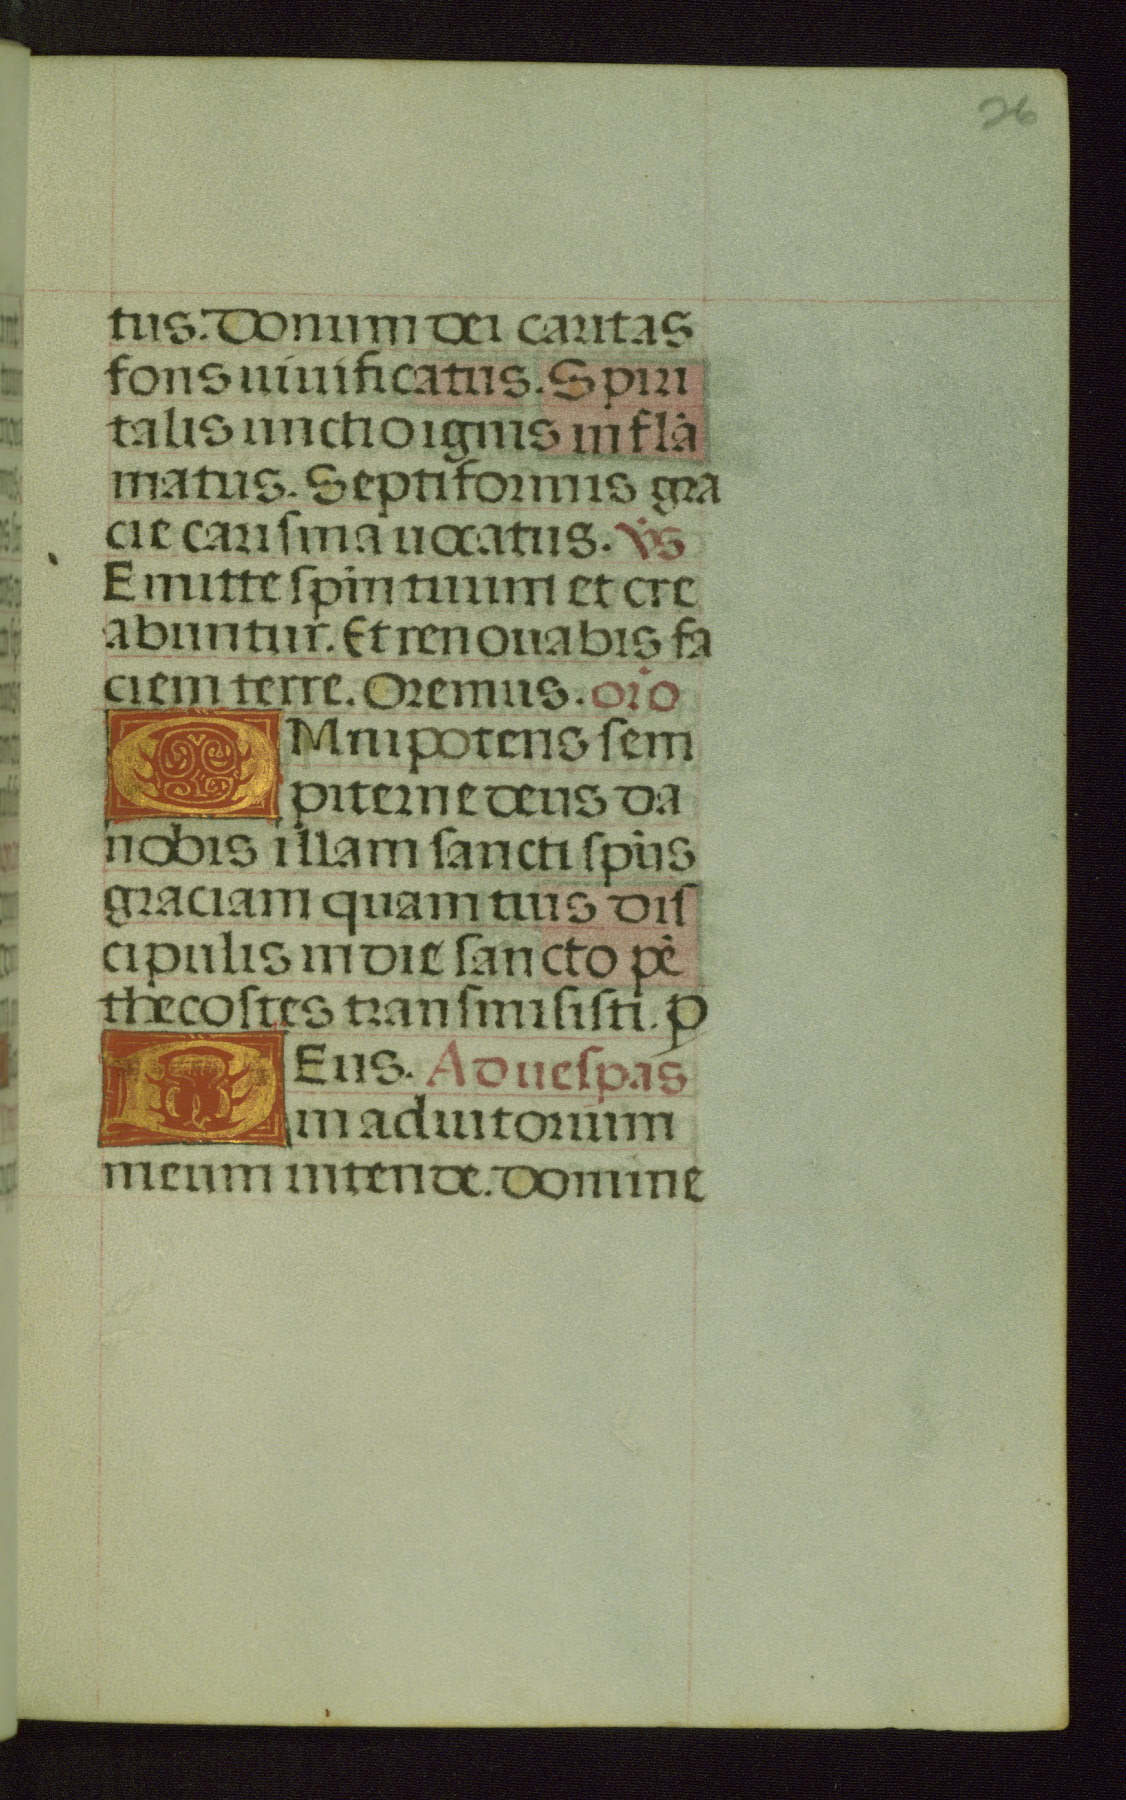 26
tus. Donum dei caritas
fons uiuificatus. Spiri
talis unctio ignis inflā
matus. Septiformis gra
cie carismā uocatus. v̇s
Emitte spm̄ tuum et cre
abuntur. Et renouabis fa
ciem terre. Oremus. orō
OMnipotens sem
piterne deus da
nobis illam sancti spūs
graciam quam tuis dis
cipulis in die sancto pē
thecostes transmisisti. P
DEus. Ad uespas
in adiutorium
meum intende. Domine